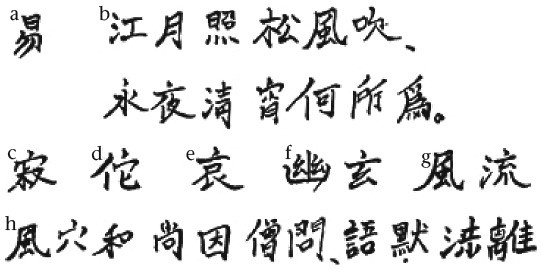 a易 b江月照松風吹、
永夜清宵何所為。
c寂 d佗 e哀 f幽玄 g風流
h風穴和尚因僧問、語默涉離